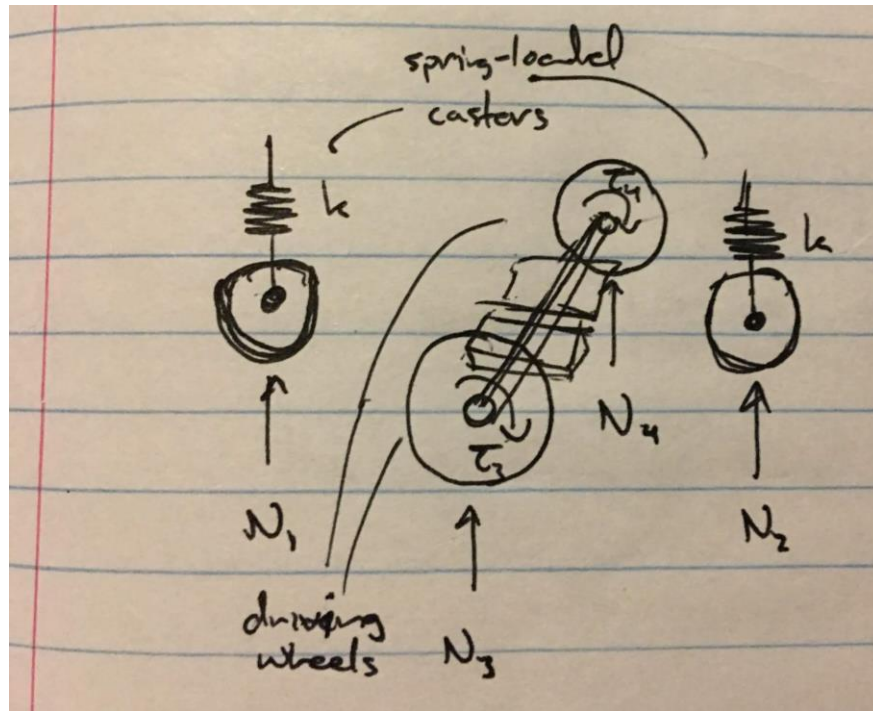 spring-loaded
casters
k
τ₄
k
N₄
τ₃
N₁
N₂
driving
wheels
N₃